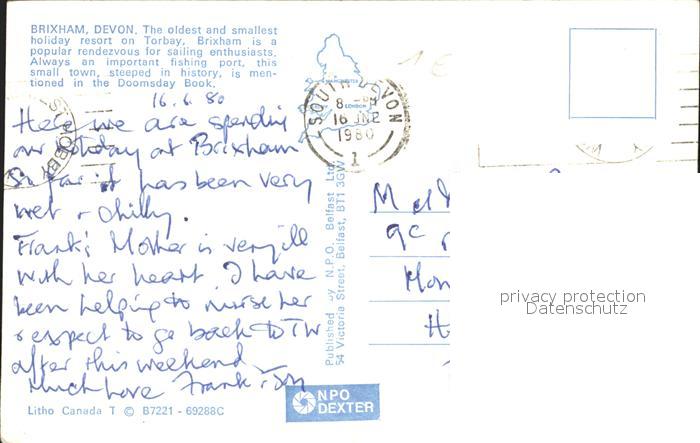 BRIXHAM, DEVON. The oldest and smallest
holiday resort on Torbay, Brixham is a
popular rendezvous for sailing enthusiasts.
Always an important fishing port, this
small town, steeped in history, is men-
tioned in the Doomsday Book.
16.6.80
Here we are spending
our holiday at Brixham
So far it has been very
wet + chilly.
Frank's Mother is very ill
with her heart. I have
been helping to nurse her
& expect to go back to TW
after this weekend
Much Love Frank
Litho Canada T © B7221 - 69288C
MANCHESTER
LONDON
SOUTH DEVON
16 JNE
1980
1
Published by N.P.O. Belfast Ltd.
54 Victoria Street, Belfast, BT1 3GW
NPO
DEXTER
9c
Hon
H
privacy protection
Datenschutz